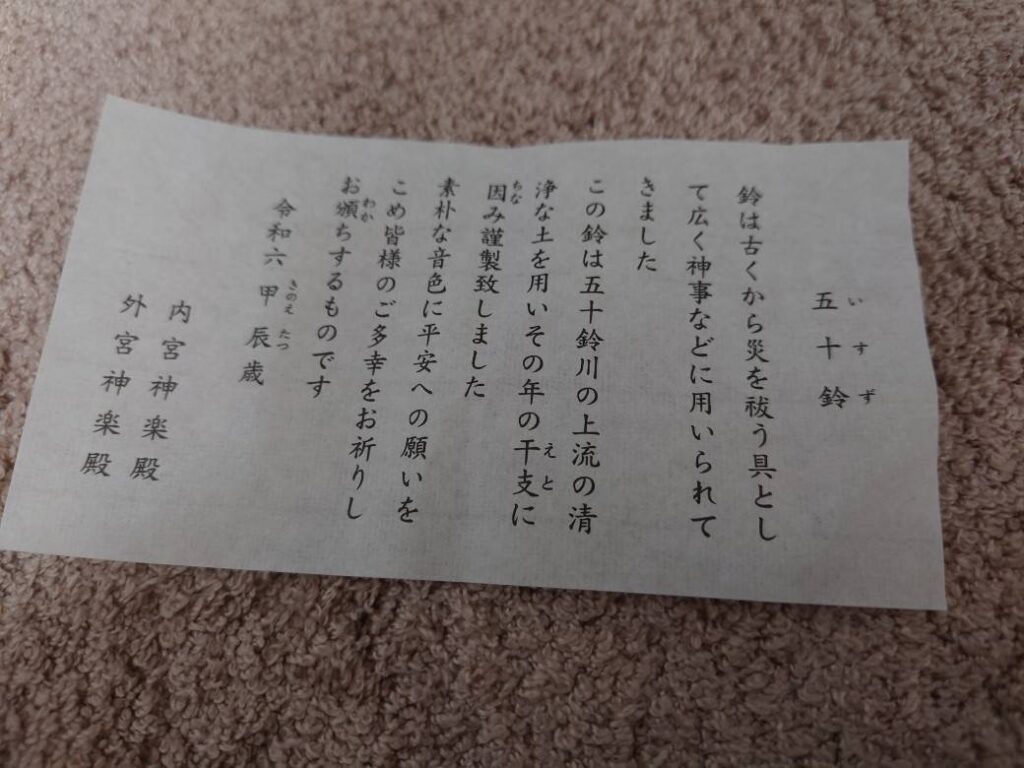 五十鈴
いすず
鈴は古くから災を祓う具とし
て広く神事などに用いられて
きました
この鈴は五十鈴川の上流の清
浄な土を用いその年の干支に
えと
因み謹製致しました
わな
素朴な音色に平安への願いを
こめ皆様のご多幸をお祈りし
お頒ちするものです
わか
令和六甲辰歳
きのえたつ
内宮神楽殿
外宮神楽殿